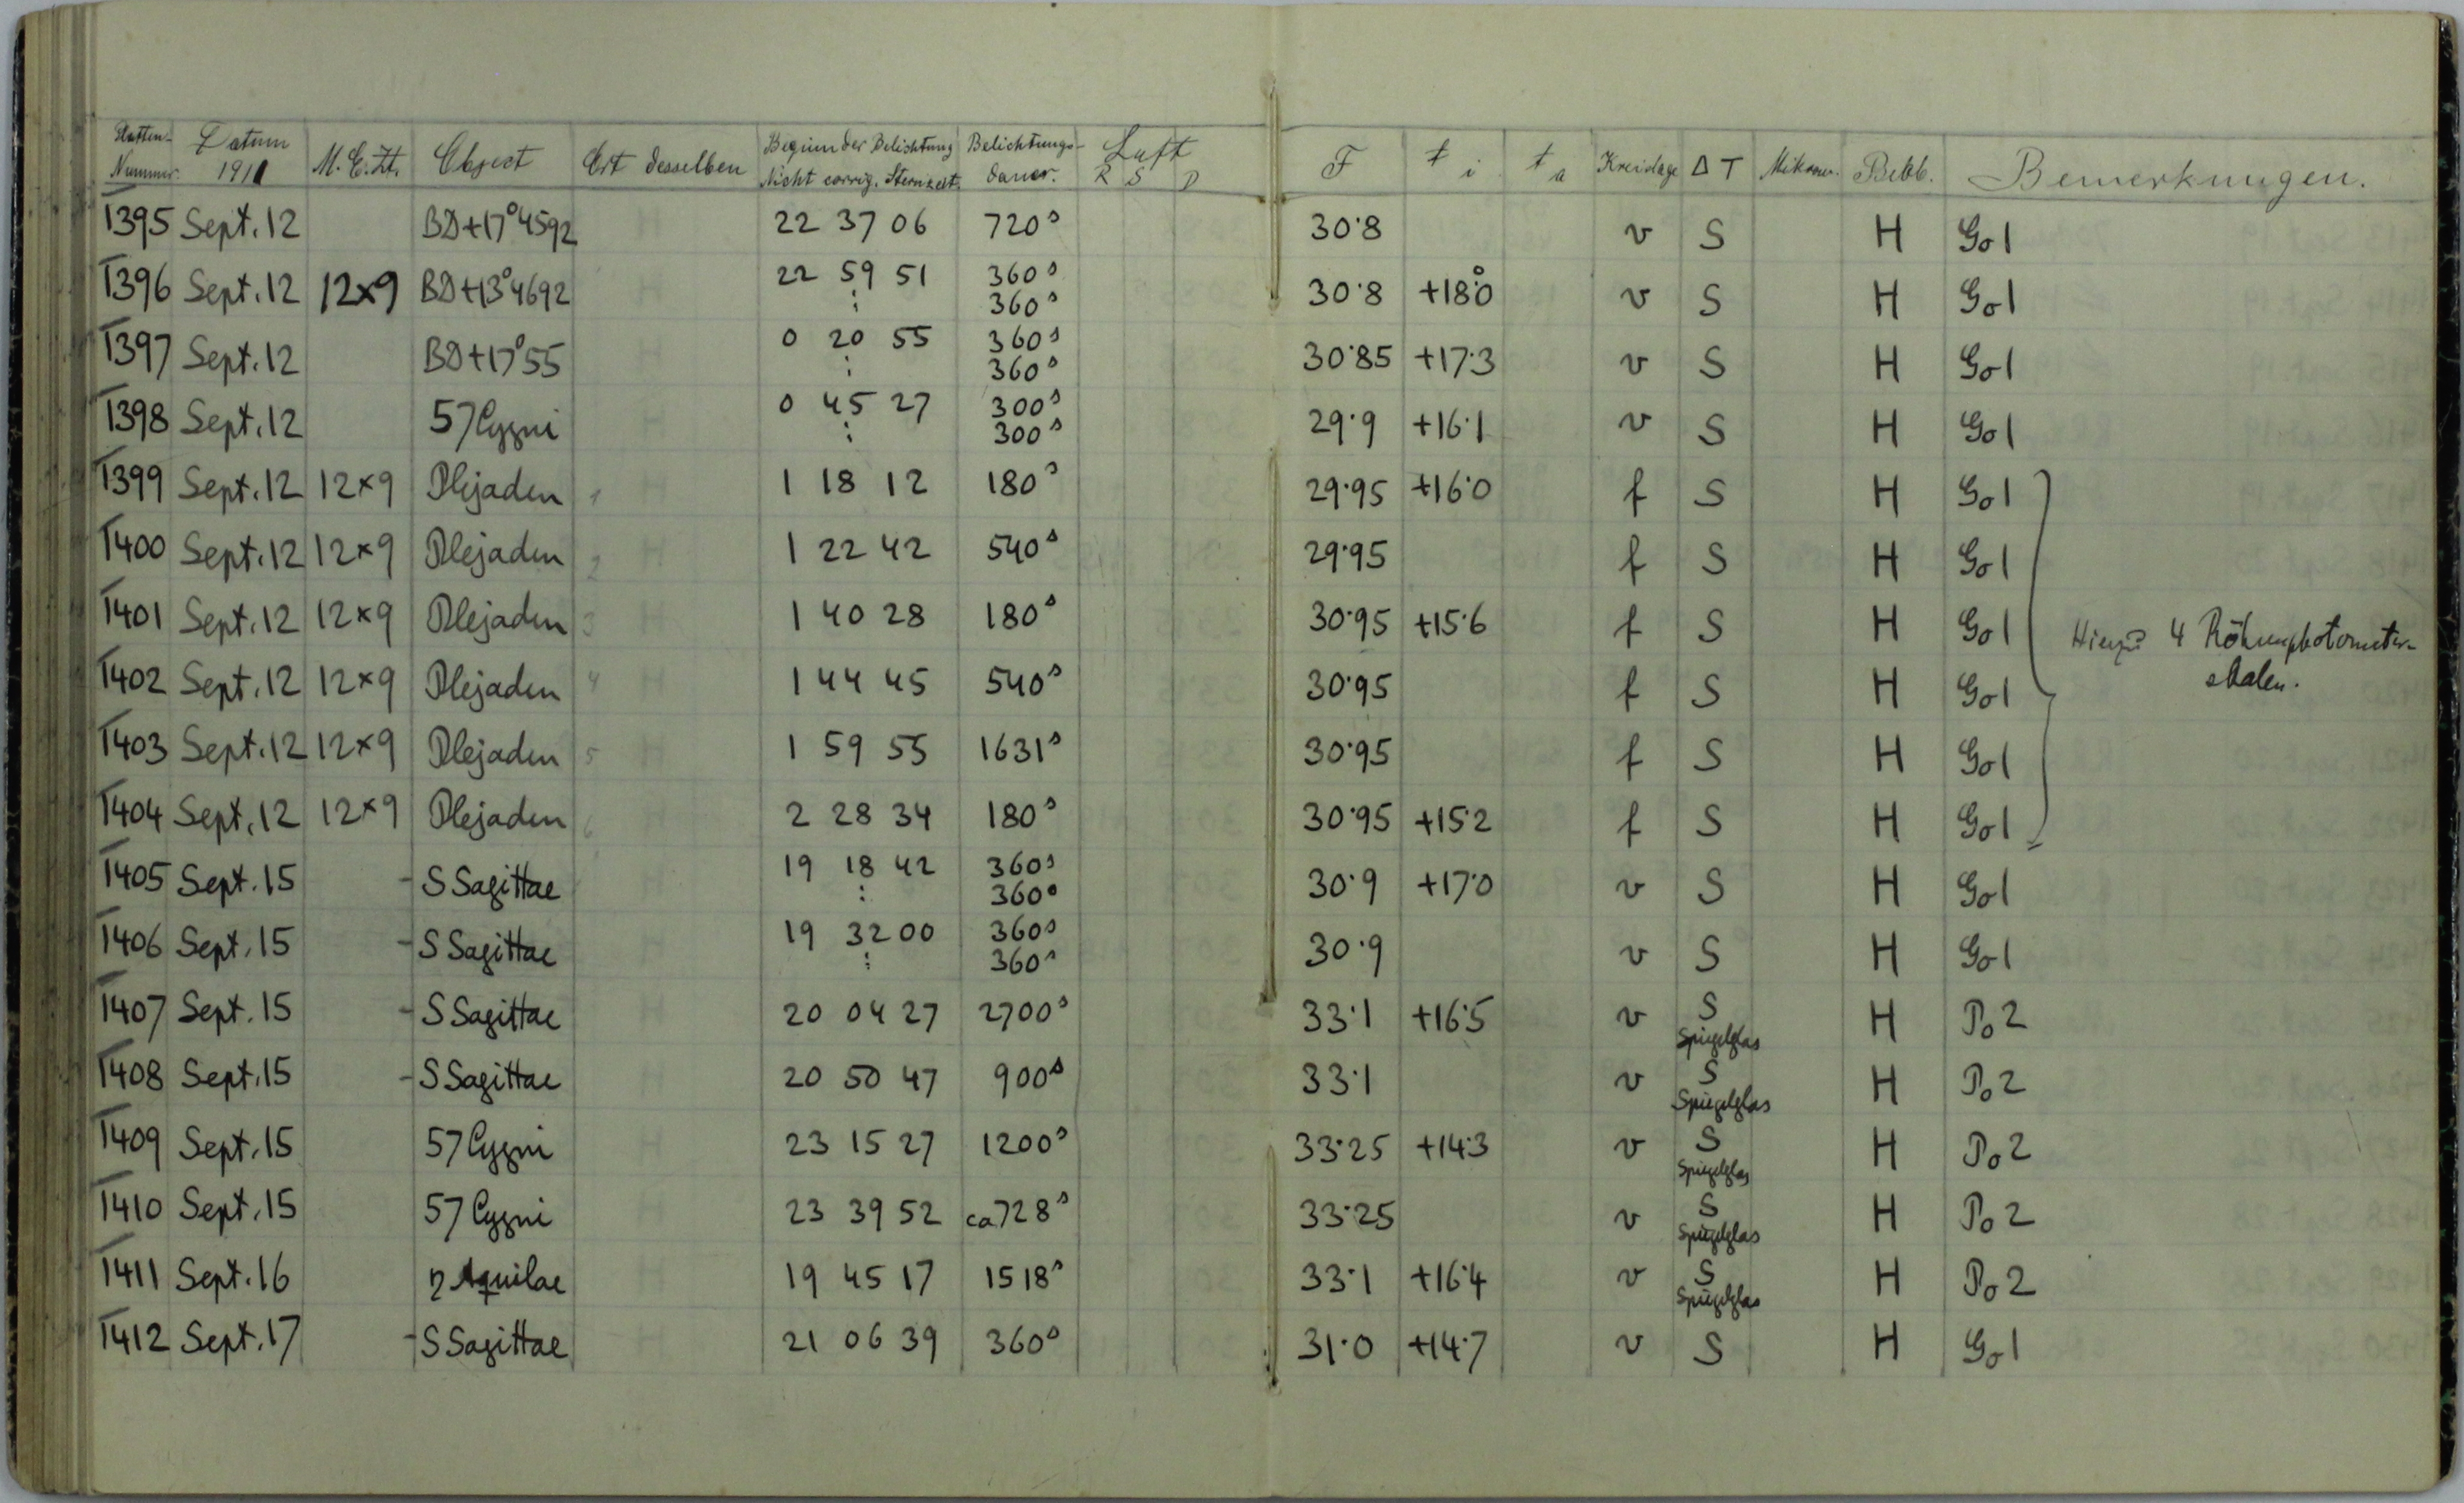 Platten-Nummer. Datum 1911 M.E.Zt. Object Ort desselben Beginn der Belichtung Nicht corrig. Sternzeit. Belichtungs-dauer. Luft R S D F t i t a Kreislage Δ T Mikrom. Bebb. Bemerkungen.
T395 Sept. 12 BD+17°4592 22 37 06 720s 30.8 v S H Go1
T396 Sept. 12 12×9 BD+13°4692 22 59 51 360s : 360s 30.8 +18.°0 v S H Go1
T397 Sept. 12 BD+17°55 0 20 55 360s : 360s 30.85 +17.3 v S H Go1
T398 Sept. 12 57 Cygni 0 45 27 300s : 300s 29.9 +16.1 v S H Go1
T399 Sept. 12 12×9 Plejaden 1 1 18 12 180s 29.95 +16.0 f S H Go1
T400 Sept. 12 12×9 Plejaden 2 1 22 42 540s 29.95 f S H Go1
T401 Sept. 12 12×9 Plejaden 3 1 40 28 180s 30.95 +15.6 f S H Go1 4 Röhrenphotometer-
T402 Sept. 12 12×9 Plejaden 4 1 44 45 540s 30.95 f S H Go1 skalen.
T403 Sept. 12 12×9 Plejaden 5 1 59 55 1631s 30.95 f S H Go1
T404 Sept. 12 12×9 Plejaden 6 2 28 34 180s 30.95 +15.2 f S H Go1
T405 Sept. 15 - S Sagittae 19 18 42 360s : 360s 30.9 +17.0 v S H Go1
T406 Sept. 15 - S Sagittae 19 32 00 360s : 360s 30.9 v S H Go1
T407 Sept. 15 - S Sagittae 20 04 27 2700s 33.1 +16.5 v S Spiegelglas H Po2
T408 Sept. 15 - S Sagittae 20 50 47 900s 33.1 v S Spiegelglas H Po2
T409 Sept. 15 57 Cygni 23 15 27 1200s 33.25 +14.3 v S Spiegelglas H Po2
T410 Sept. 15 57 Cygni 23 39 52 ca 728s 33.25 v S Spiegelglas H Po2
T411 Sept. 16 η Aquilae 19 45 17 1518s 33.1 +16.4 v S Spiegelglas H Po2
T412 Sept. 17 - S Sagittae 21 06 39 360s 31.0 +14.7 v S H Go1